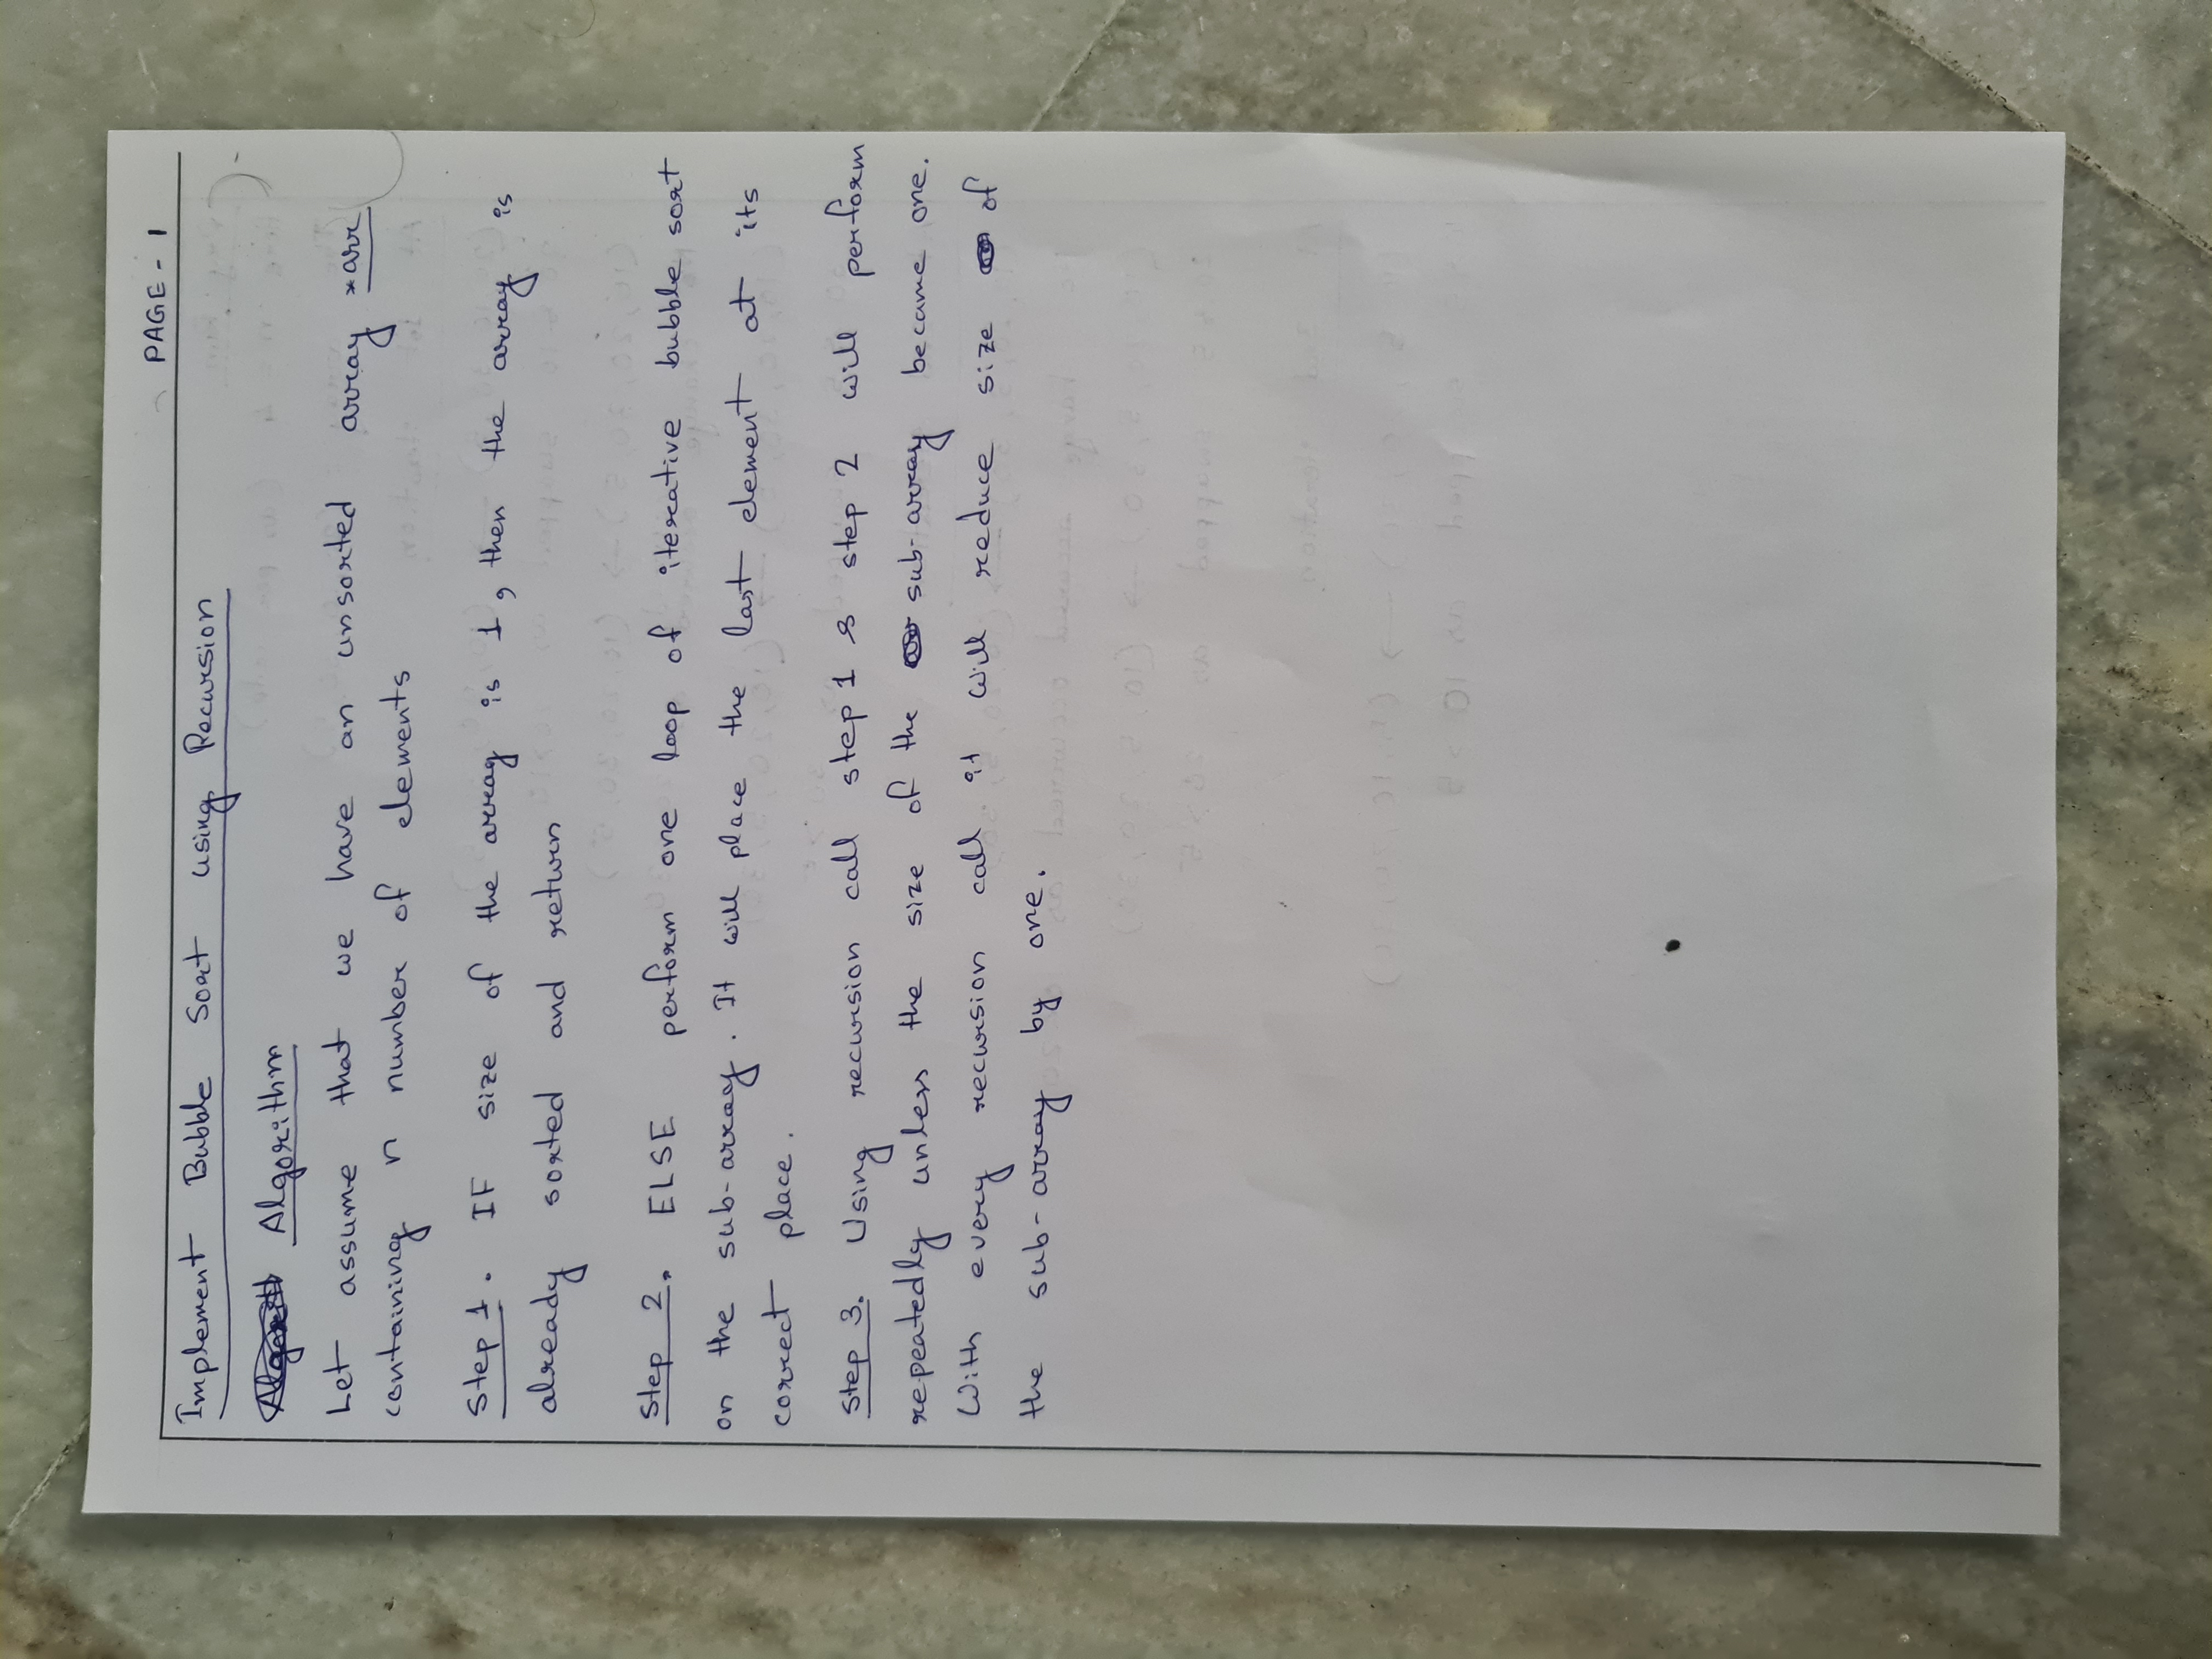 PAGE - 1
Implement Bubble Sort using Recursion
Algorithm
Let assume that we have an unsorted array *arr
containing n number of elements
Step 1. IF size of the array is 1, then the array is
already sorted and return
Step 2. ELSE perform one loop of iterative bubble sort
on the sub-array. It will place the last element at its
correct place.
Step 3. Using recursion call step 1 & step 2 will perform
repeatedly unless the size of the sub-array became one.
With every recursion call it will reduce size of
the sub-array by one.